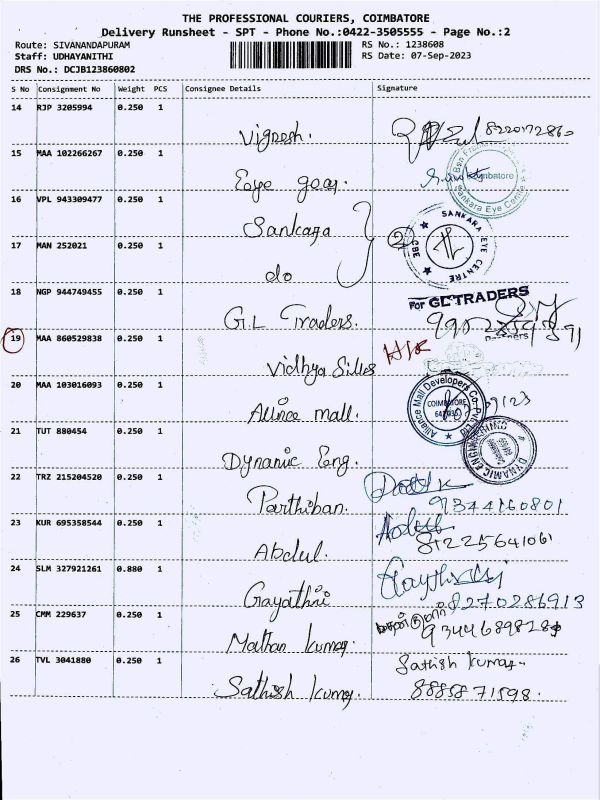 THE PROFESSIONAL COURIERS, COIMBATORE
Delivery Runsheet - SPT - Phone No.:0422-3505555 - Page No.:2
Route: SIVANANDAPURAM
RS No.: 1238608
Staff: UDHAYANITHI
RS Date: 07-Sep-2023
DRS No.: DCJB123860802
S No Consignment No Weight PCS Consignee Details Signature
14 RJP 3205994 0.250 1
Vignesh.
15 MAA 102266267 0.250 1
Eye gear.
Sankara Eye Centre
16 VPL 943309477 0.250 1
Sankara
2
SANKARA EYE CENTRE
CBE
17 MAN 252021 0.250 1
do
18 NGP 944749455 0.250 1
For GL TRADERS
G.L Traders.
19 MAA 860529838 0.250 1
Vidhya Silks
20 MAA 103016093 0.250 1
Allince mall.
Alliance Mall Developers Co. Pvt. Ltd
COIMBATORE
21 TUT 880454 0.250 1
Dynamic Eng.
DYNAMIC ENGINEERING
22 TRZ 215204520 0.250 1
Parthiban.
9344160801
23 KUR 695358544 0.250 1
Abdul.
81225641061
24 SLM 327921261 0.880 1
Gayathri
8270286913
25 CMM 229637 0.250 1
Mathan kumar
26 TVL 3041880 0.250 1
Sathish kumar
Sathish kumar
8885871598.